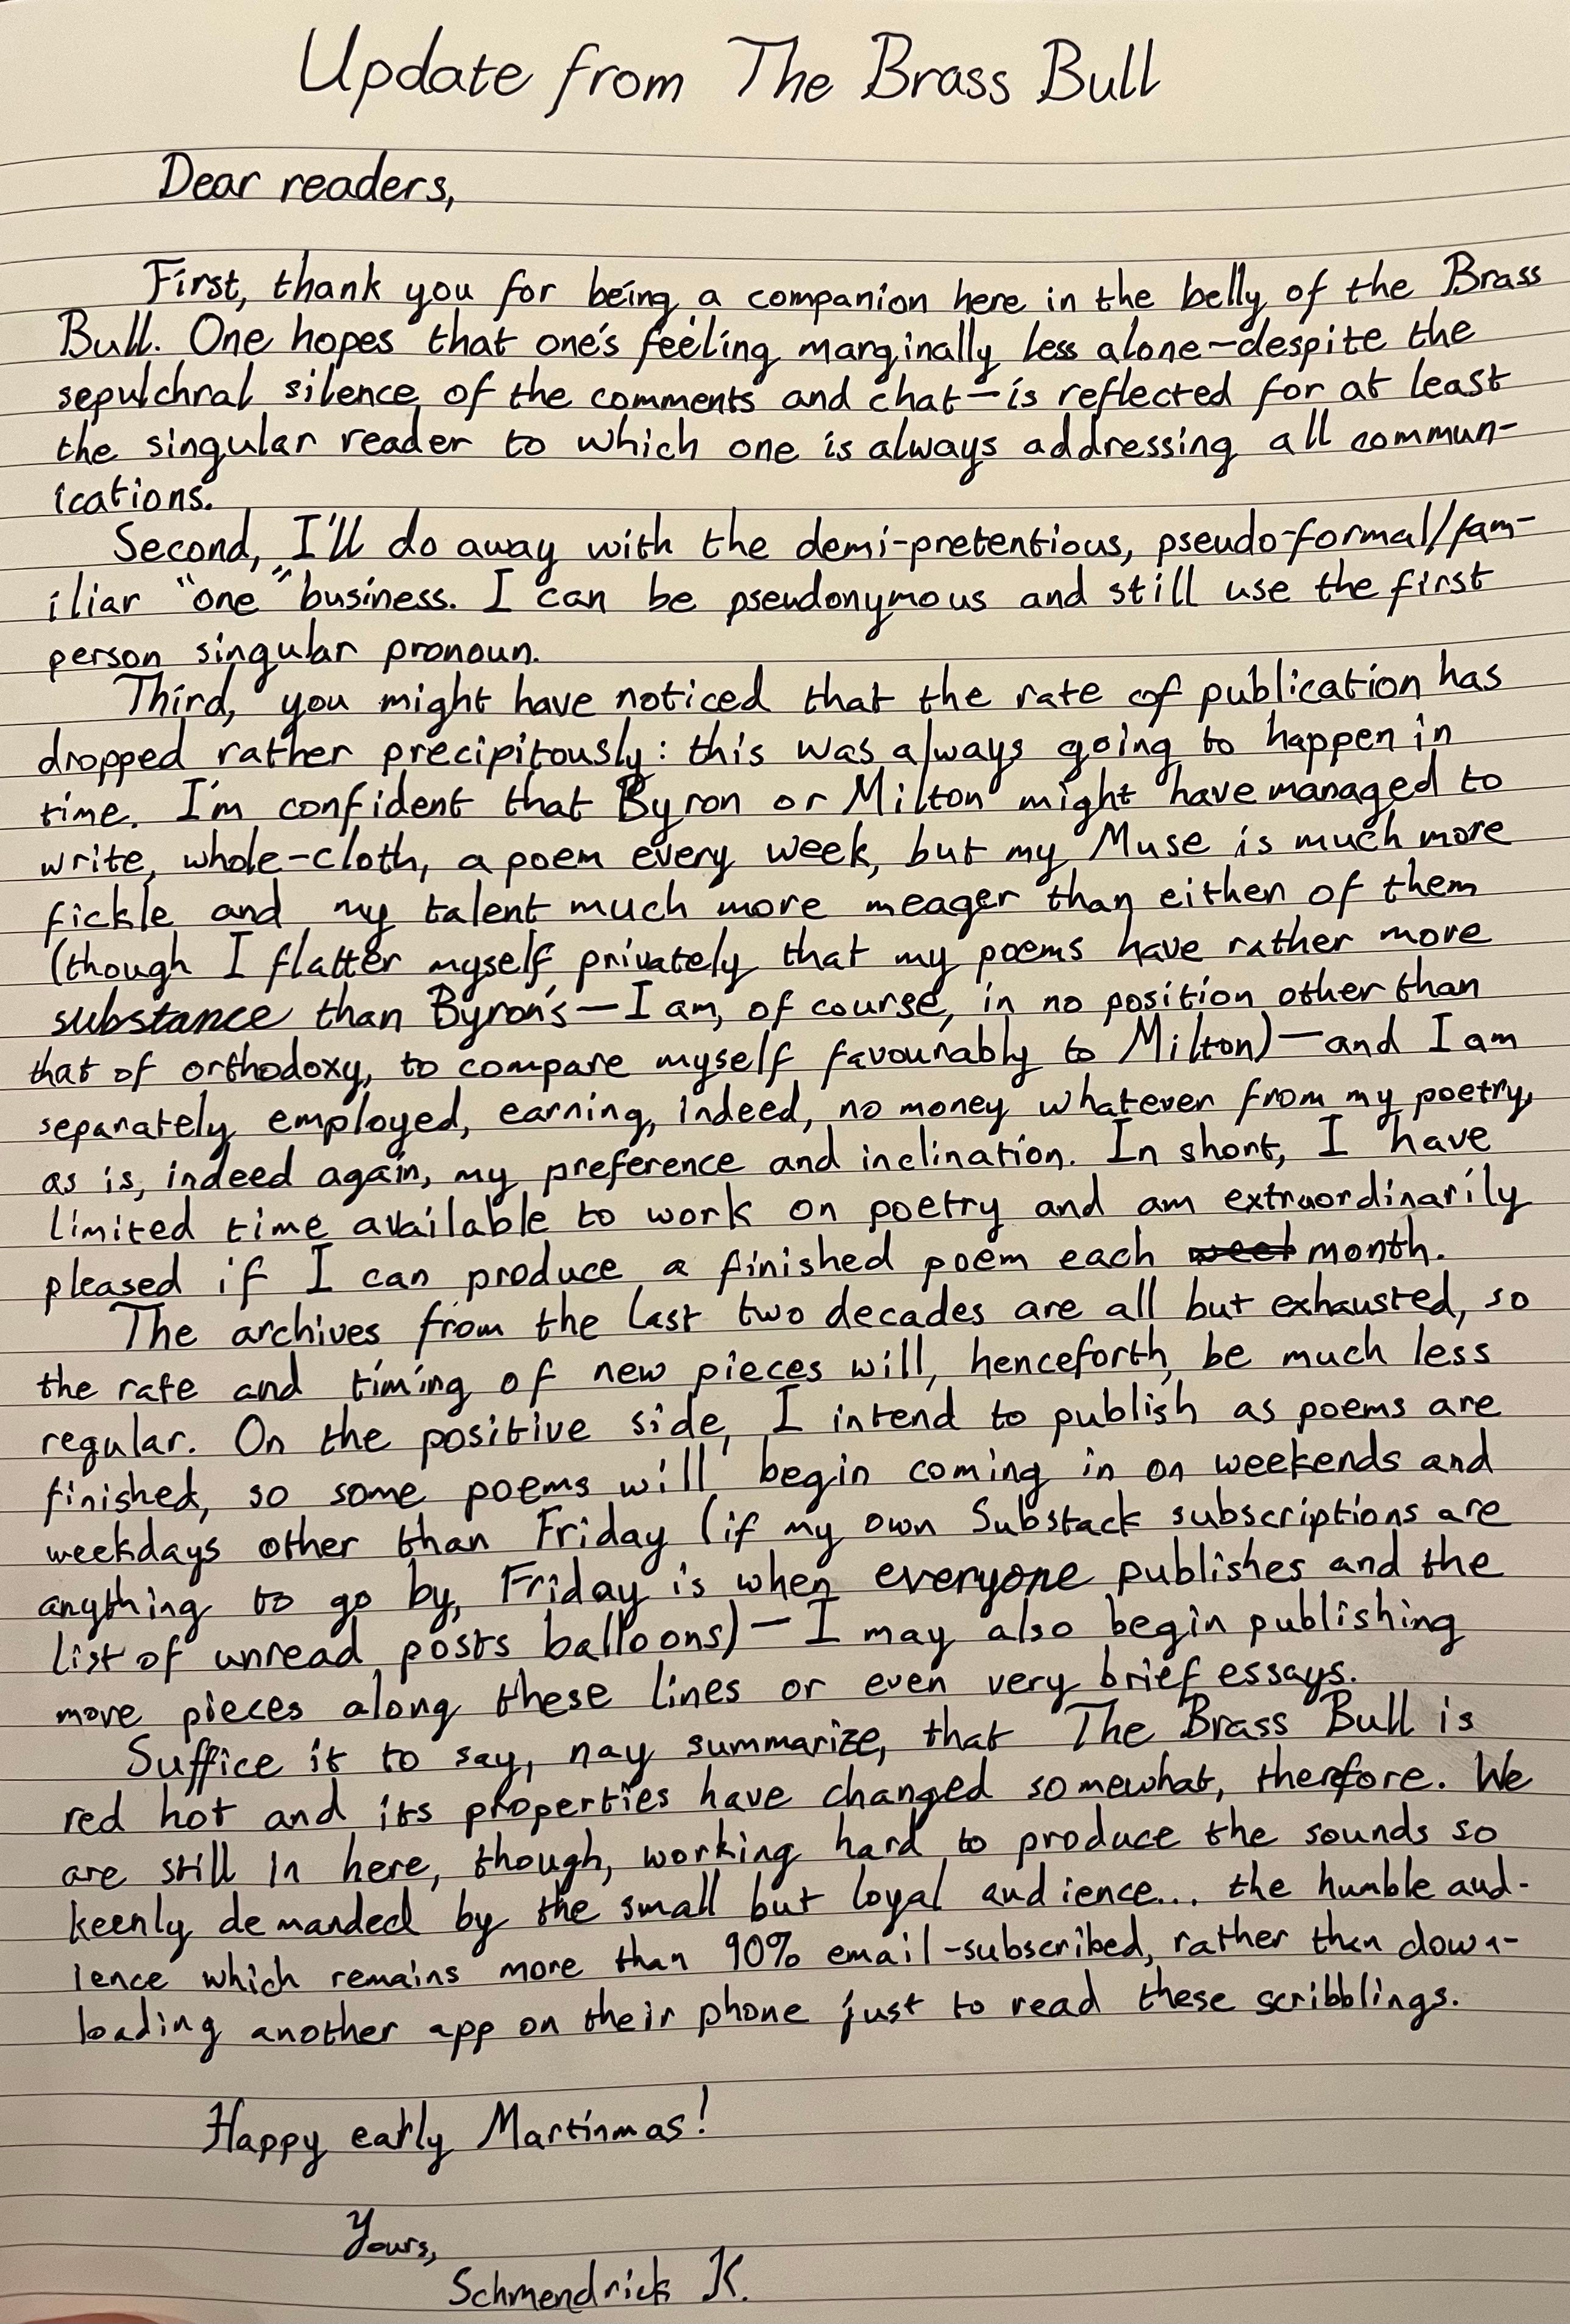 Update from The Brass Bull
Dear readers,
First, thank you for being a companion here in the belly of the Brass
Bull. One hopes that one's feeling marginally less alone—despite the
sepulchral silence of the comments and chat—is reflected for at least
the singular reader to which one is always addressing all commun-
ications.
Second, I'll do away with the demi-pretentious, pseudo-formal/fam-
iliar "one" business. I can be pseudonymous and still use the first
person singular pronoun.
Third, you might have noticed that the rate of publication has
dropped rather precipitously: this was always going to happen in
time. I'm confident that Byron or Milton might have managed to
write, whole-cloth, a poem every week, but my Muse is much more
fickle and my talent much more meager than either of them
(though I flatter myself privately that my poems have rather more
substance than Byron's—I am, of course, in no position other than
that of orthodoxy, to compare myself favourably to Milton)—and I am
separately employed, earning, indeed, no money whatever from my poetry,
as is, indeed again, my preference and inclination. In short, I have
limited time available to work on poetry and am extraordinarily
pleased if I can produce a finished poem each week month.
The archives from the last two decades are all but exhausted, so
the rate and timing of new pieces will, henceforth, be much less
regular. On the positive side, I intend to publish as poems are
finished, so some poems will begin coming in on weekends and
weekdays other than Friday (if my own Substack subscriptions are
anything to go by, Friday is when everyone publishes and the
list of unread posts balloons)—I may also begin publishing
more pieces along these lines or even very brief essays.
Suffice it to say, nay summarize, that The Brass Bull is
red hot and its properties have changed somewhat, therefore. We
are still in here, though, working hard to produce the sounds so
keenly demanded by the small but loyal audience... the humble aud-
ience which remains more than 90% email-subscribed, rather than down-
loading another app on their phone just to read these scribblings.
Happy early Martinmas!
Yours,
Schmendrick K.